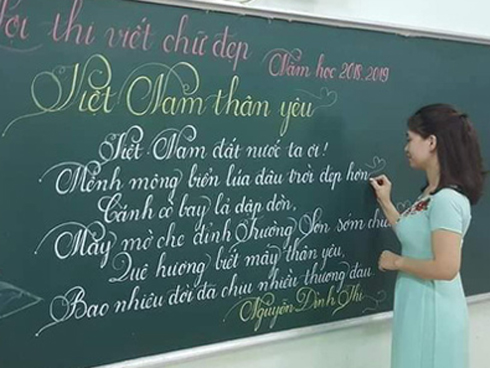 thi viết chữ đẹp
Năm học 2018-2019
Việt Nam thân yêu
Việt Nam đất nước ta ơi!
Mênh mông biển lúa đâu trời đẹp hơn
Cánh cò bay lả dập dờn,
Mây mờ che đỉnh Trường Sơn sớm
Quê hương biết mấy thân yêu,
Bao nhiêu đời đã chịu nhiều thương đau
Nguyễn Đình Thi